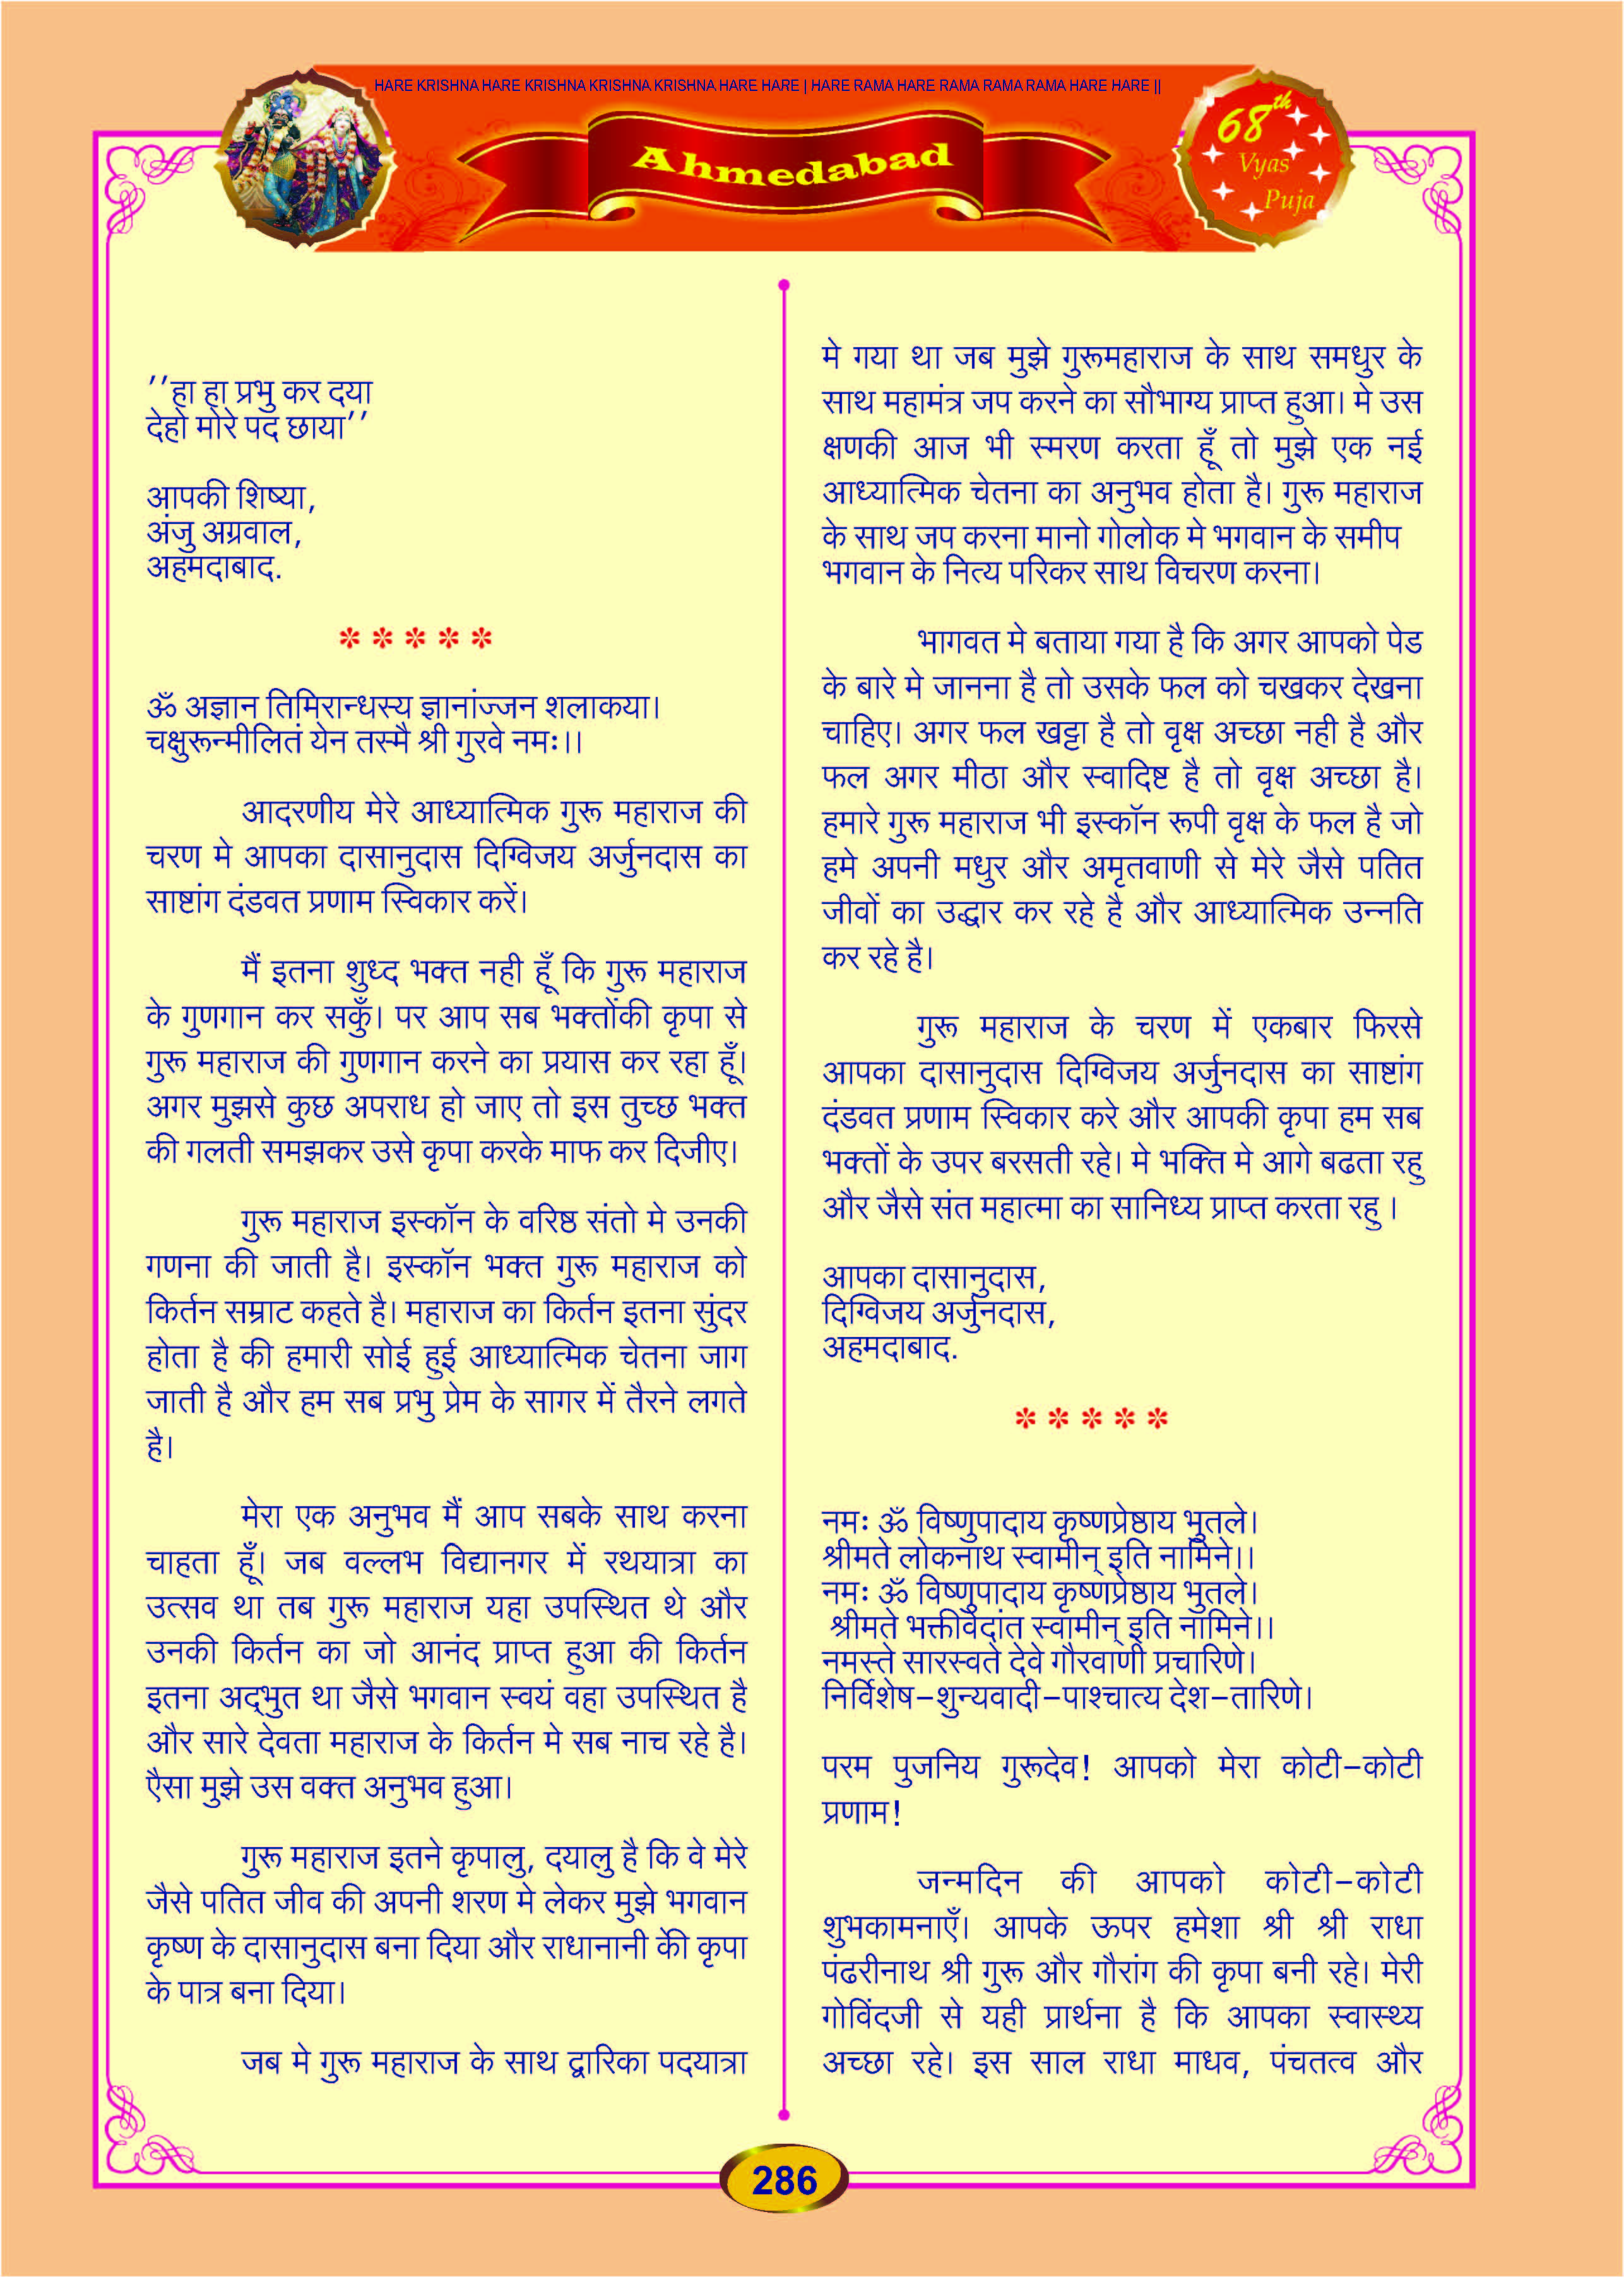 HARE KRISHNA HARE KRISHNA KRISHNA KRISHNA HARE HARE | HARE RAMA HARE RAMA RAMA RAMA HARE HARE ||
Ahmedabad
68th
Vyas
Puja
''हा हा प्रभु कर दया
देहो मोरे पद छाया''
आपकी शिष्या,
अंजु अग्रवाल,
अहमदाबाद.
* * * * *
ॐ अज्ञान तिमिरान्धस्य ज्ञानांज्जन शलाकया।
चक्षुरून्मीलितं येन तस्मै श्री गुरवे नमः।।
आदरणीय मेरे आध्यात्मिक गुरू महाराज की
चरण मे आपका दासानुदास दिग्विजय अर्जुनदास का
साष्टांग दंडवत प्रणाम स्विकार करें।
मैं इतना शुध्द भक्त नही हूँ कि गुरू महाराज
के गुणगान कर सकुँ। पर आप सब भक्तोंकी कृपा से
गुरू महाराज की गुणगान करने का प्रयास कर रहा हूँ।
अगर मुझसे कुछ अपराध हो जाए तो इस तुच्छ भक्त
की गलती समझकर उसे कृपा करके माफ कर दिजीए।
गुरू महाराज इस्कॉन के वरिष्ठ संतो मे उनकी
गणना की जाती है। इस्कॉन भक्त गुरू महाराज को
किर्तन सम्राट कहते है। महाराज का किर्तन इतना सुंदर
होता है की हमारी सोई हुई आध्यात्मिक चेतना जाग
जाती है और हम सब प्रभु प्रेम के सागर में तैरने लगते
है।
मेरा एक अनुभव मैं आप सबके साथ करना
चाहता हूँ। जब वल्लभ विद्यानगर में रथयात्रा का
उत्सव था तब गुरू महाराज यहा उपस्थित थे और
उनकी किर्तन का जो आनंद प्राप्त हुआ की किर्तन
इतना अद्भुत था जैसे भगवान स्वयं वहा उपस्थित है
और सारे देवता महाराज के किर्तन मे सब नाच रहे है।
एैसा मुझे उस वक्त अनुभव हुआ।
गुरू महाराज इतने कृपालु, दयालु है कि वे मेरे
जैसे पतित जीव की अपनी शरण मे लेकर मुझे भगवान
कृष्ण के दासानुदास बना दिया और राधानानी की कृपा
के पात्र बना दिया।
जब मे गुरू महाराज के साथ द्वारिका पदयात्रा
मे गया था जब मुझे गुरूमहाराज के साथ समधुर के
साथ महामंत्र जप करने का सौभाग्य प्राप्त हुआ। मे उस
क्षणकी आज भी स्मरण करता हूँ तो मुझे एक नई
आध्यात्मिक चेतना का अनुभव होता है। गुरू महाराज
के साथ जप करना मानो गोलोक मे भगवान के समीप
भगवान के नित्य परिकर साथ विचरण करना।
भागवत मे बताया गया है कि अगर आपको पेड
के बारे मे जानना है तो उसके फल को चखकर देखना
चाहिए। अगर फल खट्टा है तो वृक्ष अच्छा नही है और
फल अगर मीठा और स्वादिष्ट है तो वृक्ष अच्छा है।
हमारे गुरू महाराज भी इस्कॉन रूपी वृक्ष के फल है जो
हमे अपनी मधुर और अमृतवाणी से मेरे जैसे पतित
जीवों का उद्धार कर रहे है और आध्यात्मिक उन्नति
कर रहे है।
गुरू महाराज के चरण में एकबार फिरसे
आपका दासानुदास दिग्विजय अर्जुनदास का साष्टांग
दंडवत प्रणाम स्विकार करे और आपकी कृपा हम सब
भक्तों के उपर बरसती रहे। मे भक्ति मे आगे बढता रहु
और जैसे संत महात्मा का सानिध्य प्राप्त करता रहु ।
आपका दासानुदास,
दिग्विजय अर्जुनदास,
अहमदाबाद.
* * * * *
नमः ॐ विष्णुपादाय कृष्णप्रेष्ठाय भुतले।
श्रीमते लोकनाथ स्वामीन् इति नामिने।।
नमः ॐ विष्णुपादाय कृष्णप्रेष्ठाय भुतले।
श्रीमते भक्तीवेदांत स्वामीन् इति नामिने।।
नमस्ते सारस्वते देवे गौरवाणी प्रचारिणे।
निर्विशेष-शुन्यवादी-पाश्चात्य देश-तारिणे।
परम पुजनिय गुरूदेव! आपको मेरा कोटी-कोटी
प्रणाम!
जन्मदिन की आपको कोटी-कोटी
शुभकामनाएँ। आपके ऊपर हमेशा श्री श्री राधा
पंढरीनाथ श्री गुरू और गौरांग की कृपा बनी रहे। मेरी
गोविंदजी से यही प्रार्थना है कि आपका स्वास्थ्य
अच्छा रहे। इस साल राधा माधव, पंचतत्व और
286